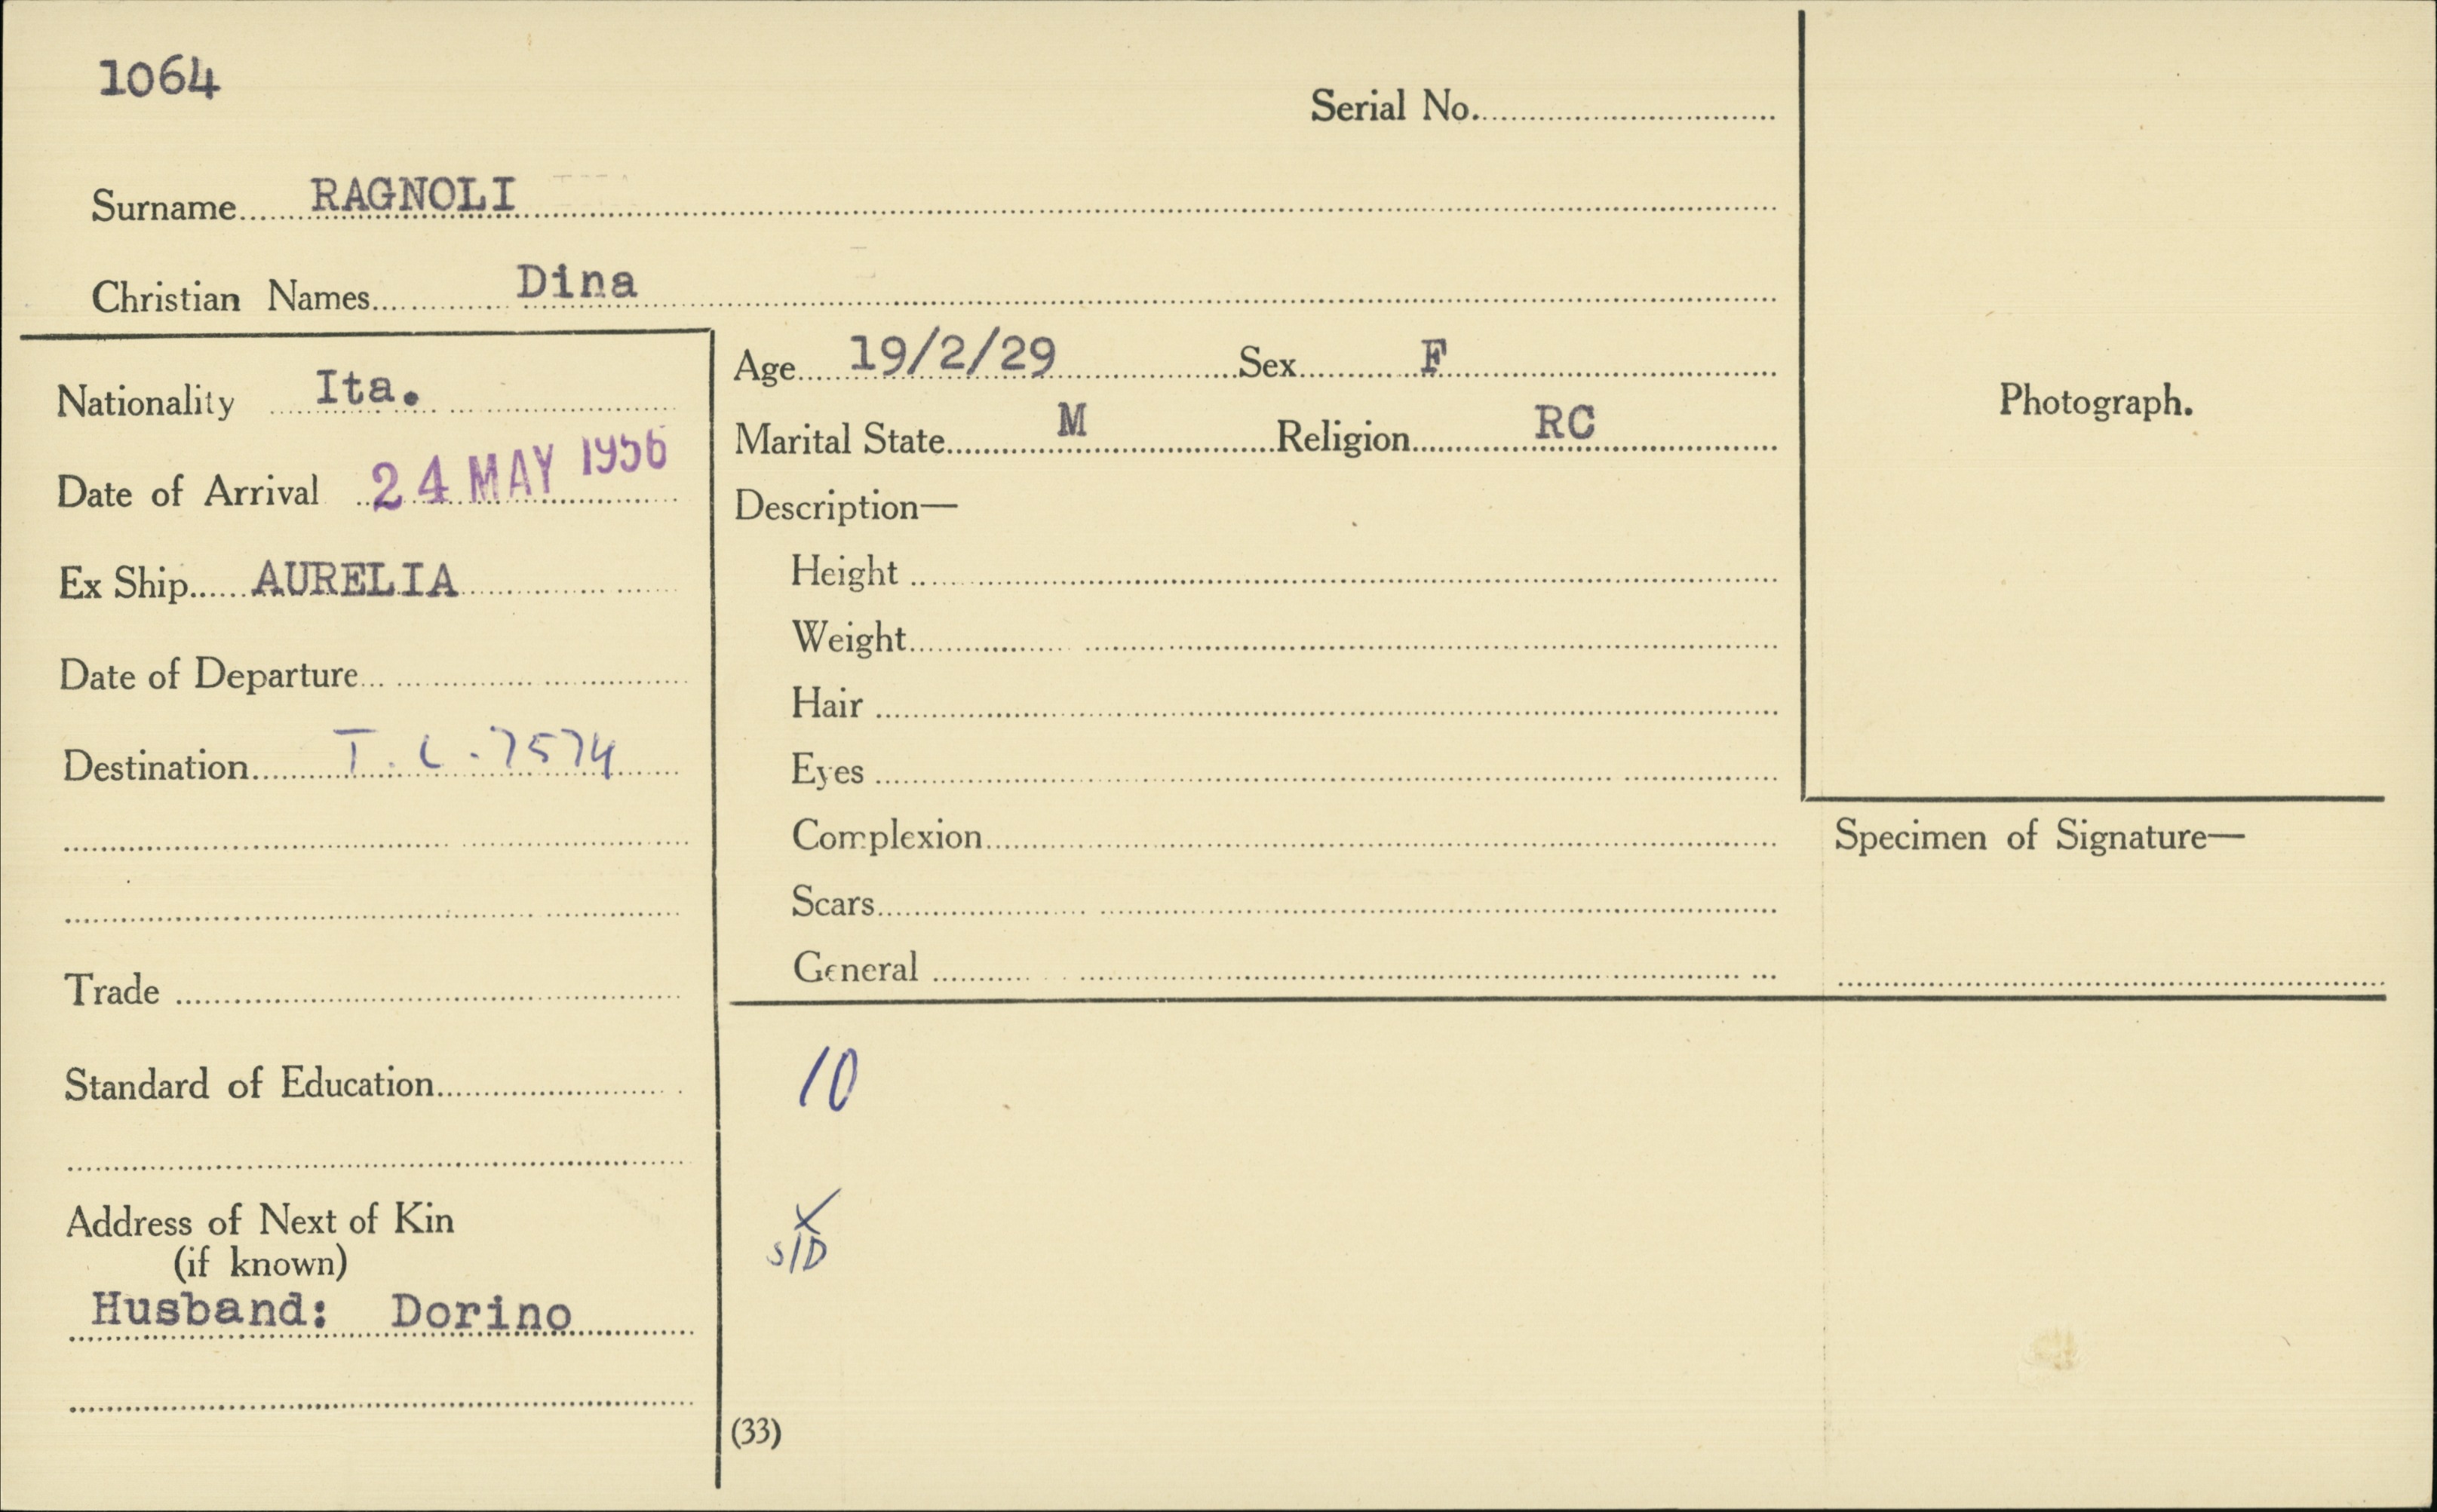 1064
Serial No.
Surname RAGNOLI
Christian Names Dina
Nationality Ita.
Date of Arrival 24 MAY 1956
Ex Ship AURELIA
Date of Departure
Destination T.C.7574
Trade
Standard of Education
Address of Next of Kin
(if known)
Husband: Dorino
Age 19/2/29 Sex F
Marital State M Religion RC
Description—
Height
Weight
Hair
Eyes
Complexion
Scars
General
10
X
S/D
(33)
Photograph.
Specimen of Signature—